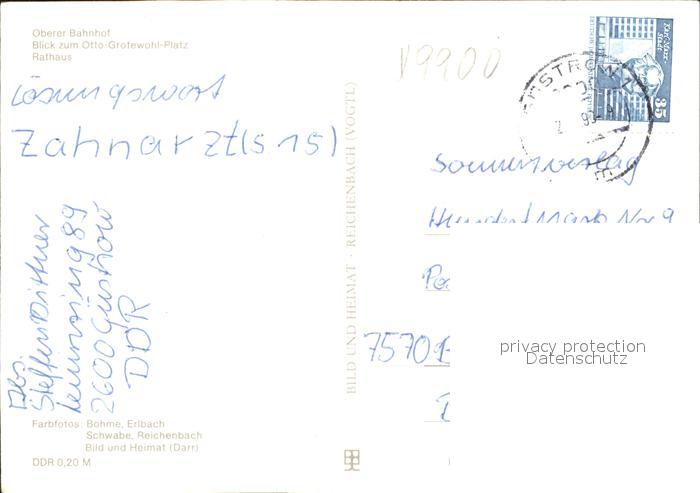 Oberer Bahnhof
Blick zum Otto-Grotewohl-Platz
Rathaus
Lösungswort
Zahnarzt (S 15)
Abs.
Steffen Dittner
Leninring 89
2600 Güstrow
DDR
Farbfotos: Böhme, Erlbach
Schwabe, Reichenbach
Bild und Heimat (Darr)
DDR 0,20 M
BILD UND HEIMAT · REICHENBACH (VOGTL)
V 99 00
Karl-Marx-
Stadt
35
GÜSTROW
Sonnenverlag
Hundert Mark Nr. 9
7570
privacy protection
Datenschutz